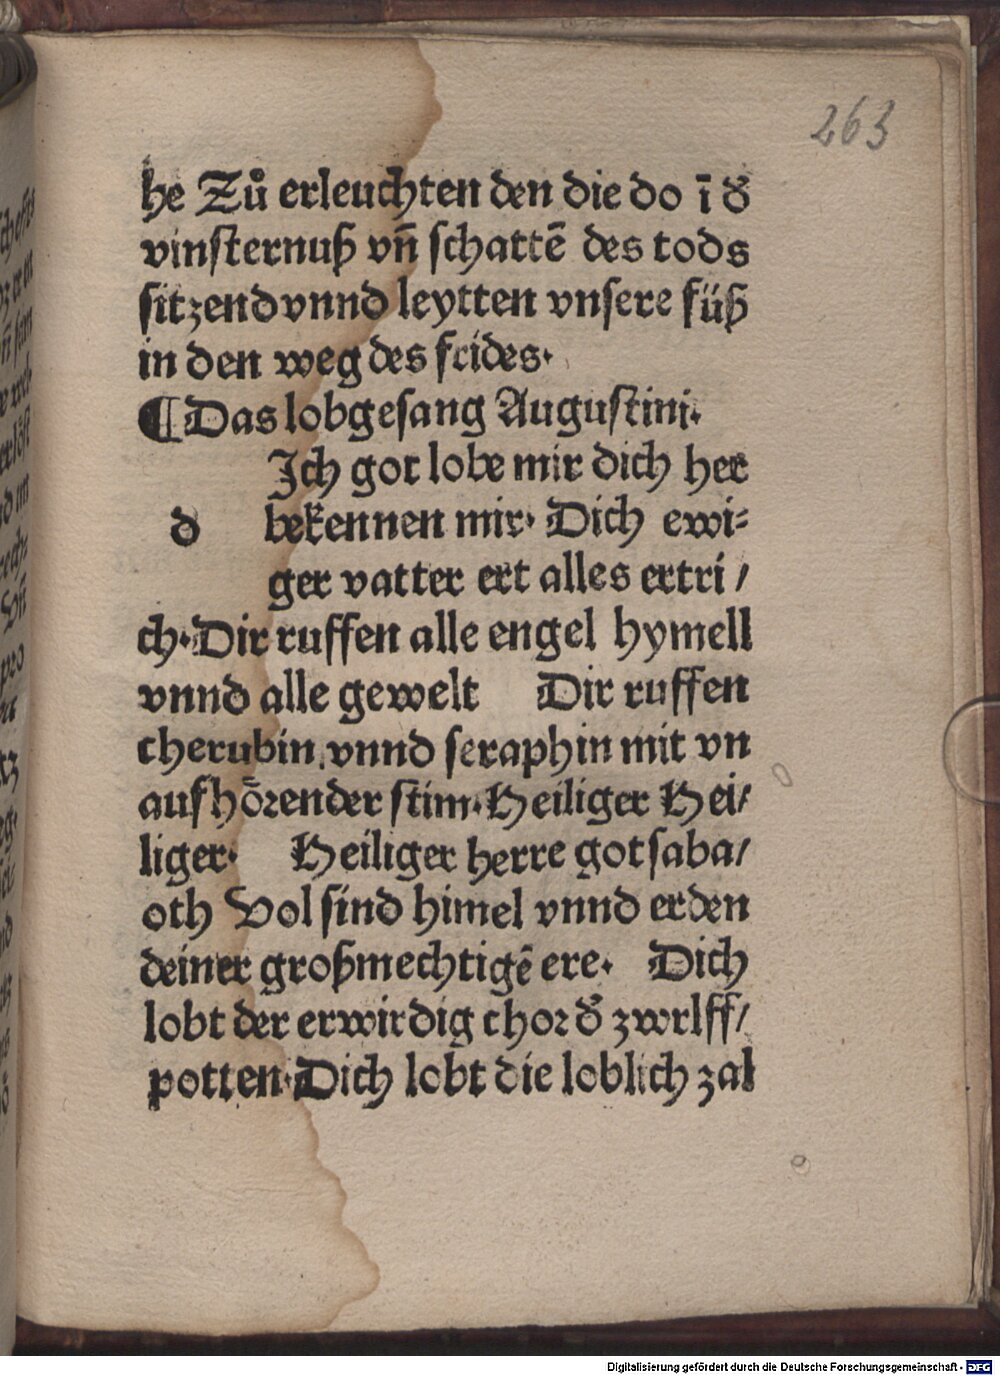 263
he Zů erleuchten den die do ī d̄
vinsternuß vn̄ schattē des tods
sitzend vnnd leytten vnsere füß
in den weg des frides·
¶ Das lobgesang Augustini.
Ich got lobe mir dich her
d bekennen mir· Dich ewi⸗
ger vatter ert alles ertri /
ch· Dir ruffen alle engel hymell
vnnd alle gewelt Dir ruffen
cherubin, vnnd seraphin mit vn
aufhörender stim· Heiliger Hei/
liger· Heiliger herre got saba/
oth Vol sind himel vnnd erden
deiner großmechtigē ere· Dich
lobt der erwirdig chor d̄ zwrlff/
potten· Dich lobt die loblich zal
Digitalisierung gefördert durch die Deutsche Forschungsgemeinschaft - DFG